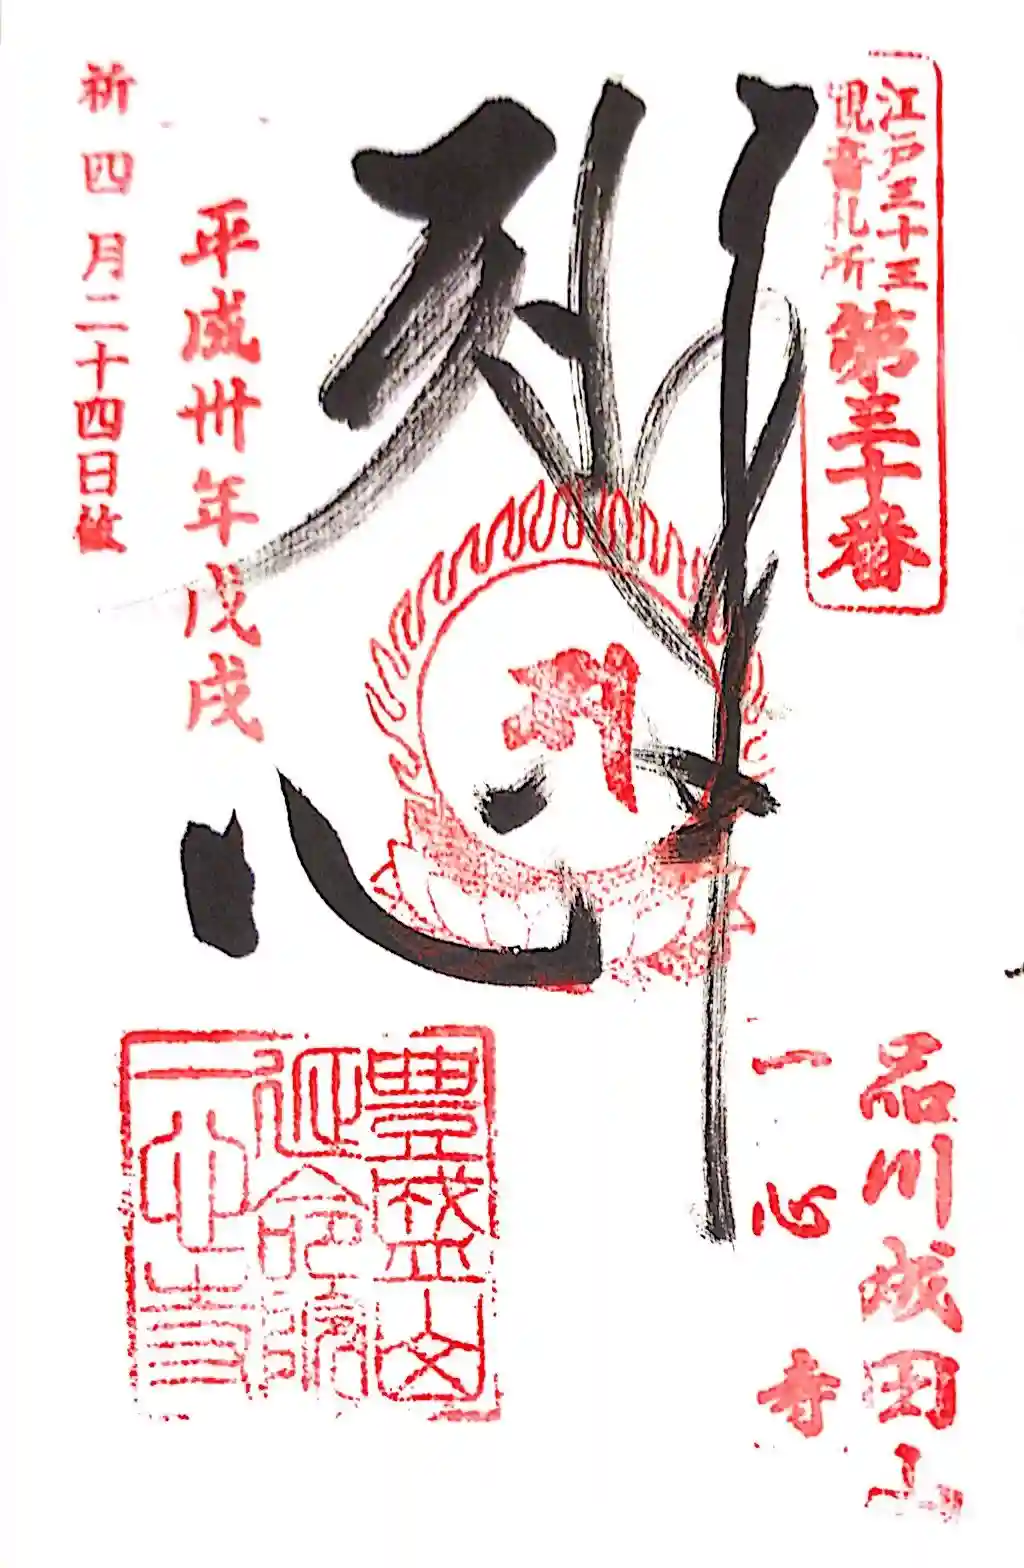 江戸三十三
観音札所
第三十番
品川成田山
一心寺
平成卅年戊戌
四月二十四日
豊盛山
延命院
一心寺